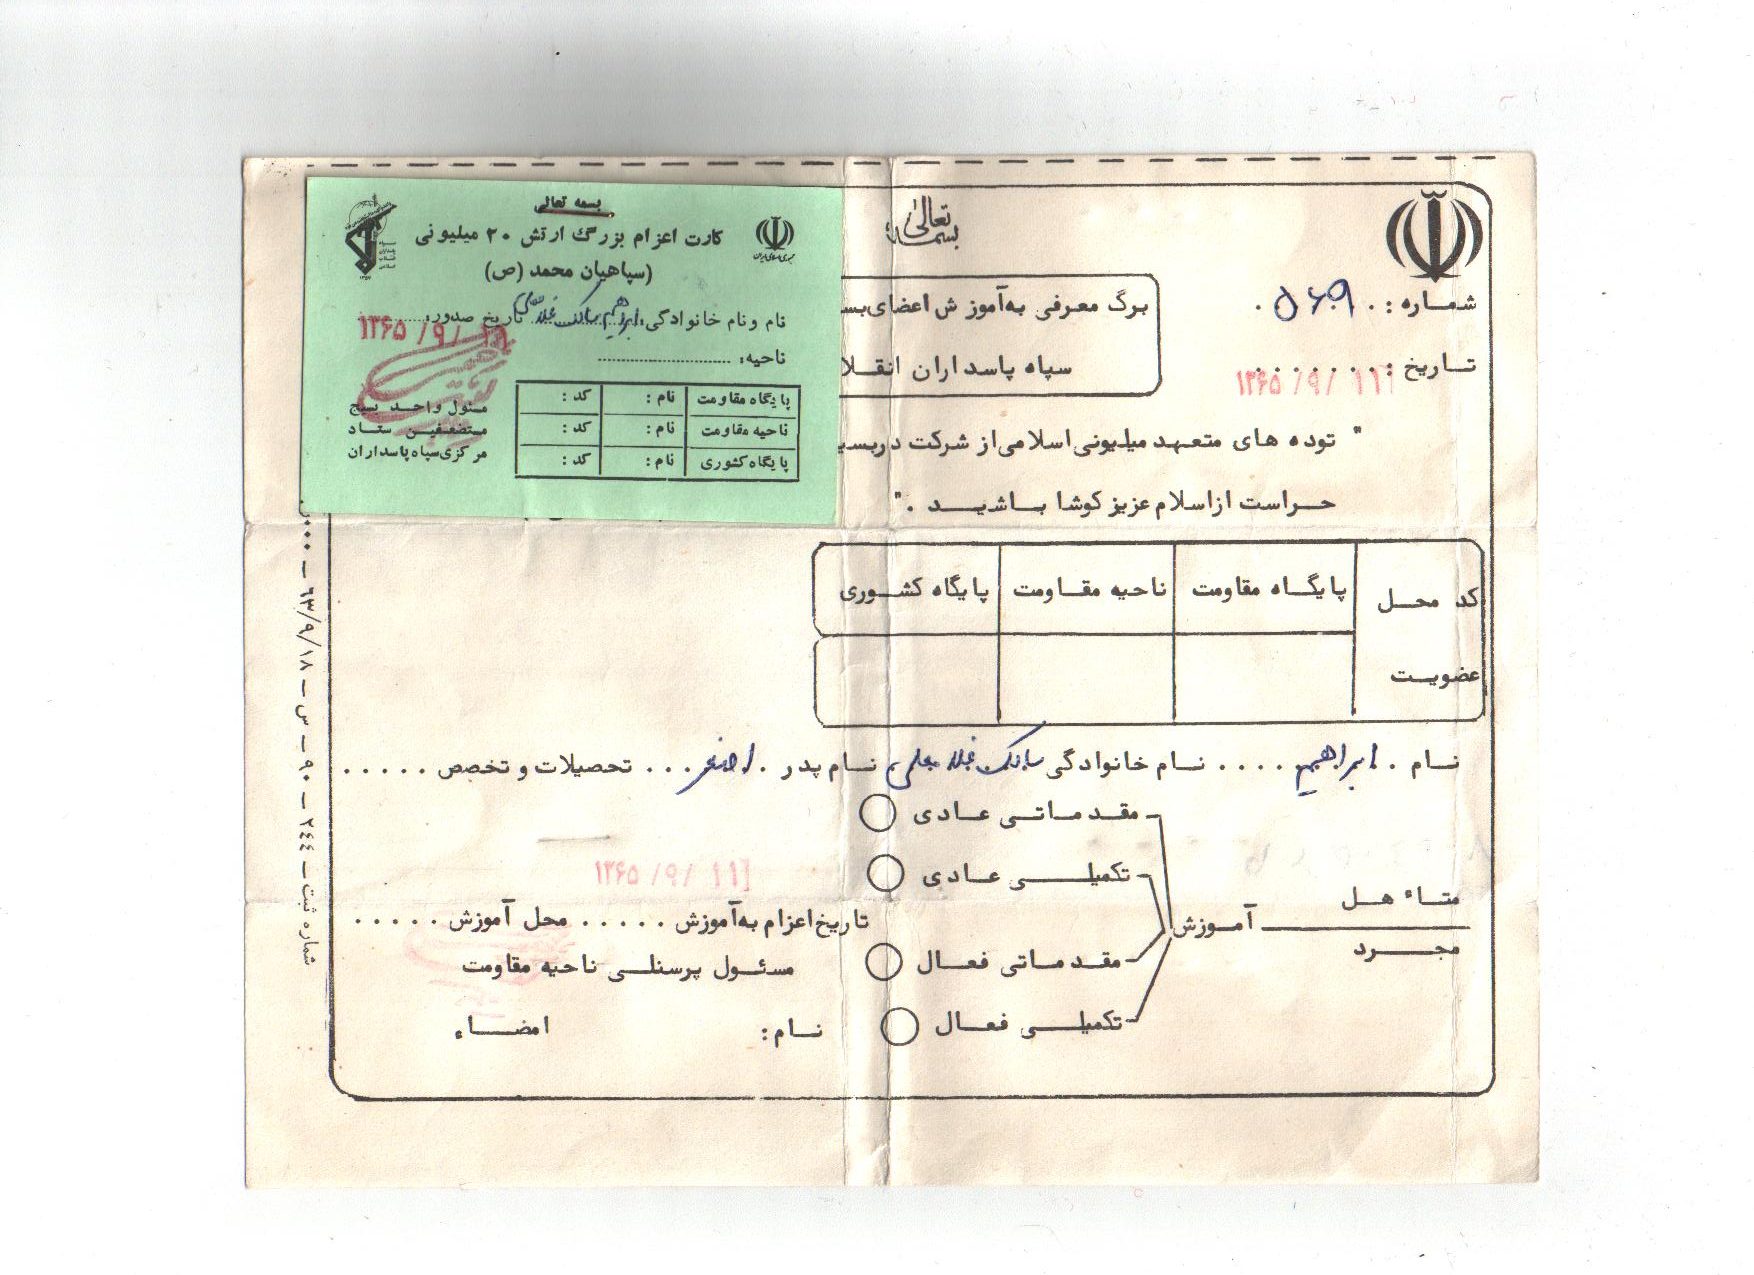 بسمه تعالی
شماره : ۵۶۹
برگ معرفی به آموزش اعضای بس
تاریخ : ۱۳۶۵/۹/۱۱
سپاه پاسداران انقلا
" توده های متعهد میلیونی اسلامی از شرکت در بسی
حراست از اسلام عزیز کوشا باشید . "
کد محل عضویت
پایگاه مقاومت
ناحیه مقاومت
پایگاه کشوری
نام . ابراهیم . . . . نام خانوادگی نام پدر . اصغر . . . تحصیلات و تخصص . . . . .
مقدماتی عادی
تکمیلی عادی
۱۳۶۵/۹/۱۱
متاءهل
مجرد
آموزش
تاریخ اعزام به آموزش . . . . . محل آموزش . . . . .
مقدماتی فعال
مسئول پرسنلی ناحیه مقاومت
تکمیلی فعال
نام :
امضاء
شماره ثبت ـ ۲۴۴ ـ ۹۰ ـ س ـ ۶۳/۹/۱۸ ـ
بسمه تعالی
کارت اعزام بزرگ ارتش ۲۰ میلیونی
(سپاهیان محمد (ص)
جمهوری اسلامی ایران
نام و نام خانوادگی: ابراهیم تاریخ صدور: ۱۳۶۵/۹/
ناحیه:
پایگاه مقاومت نام : کد :
ناحیه مقاومت نام : کد :
پایگاه کشوری نام : کد :
مسئول واحد بسیج
مستضعفین ستاد
مرکزی سپاه پاسداران